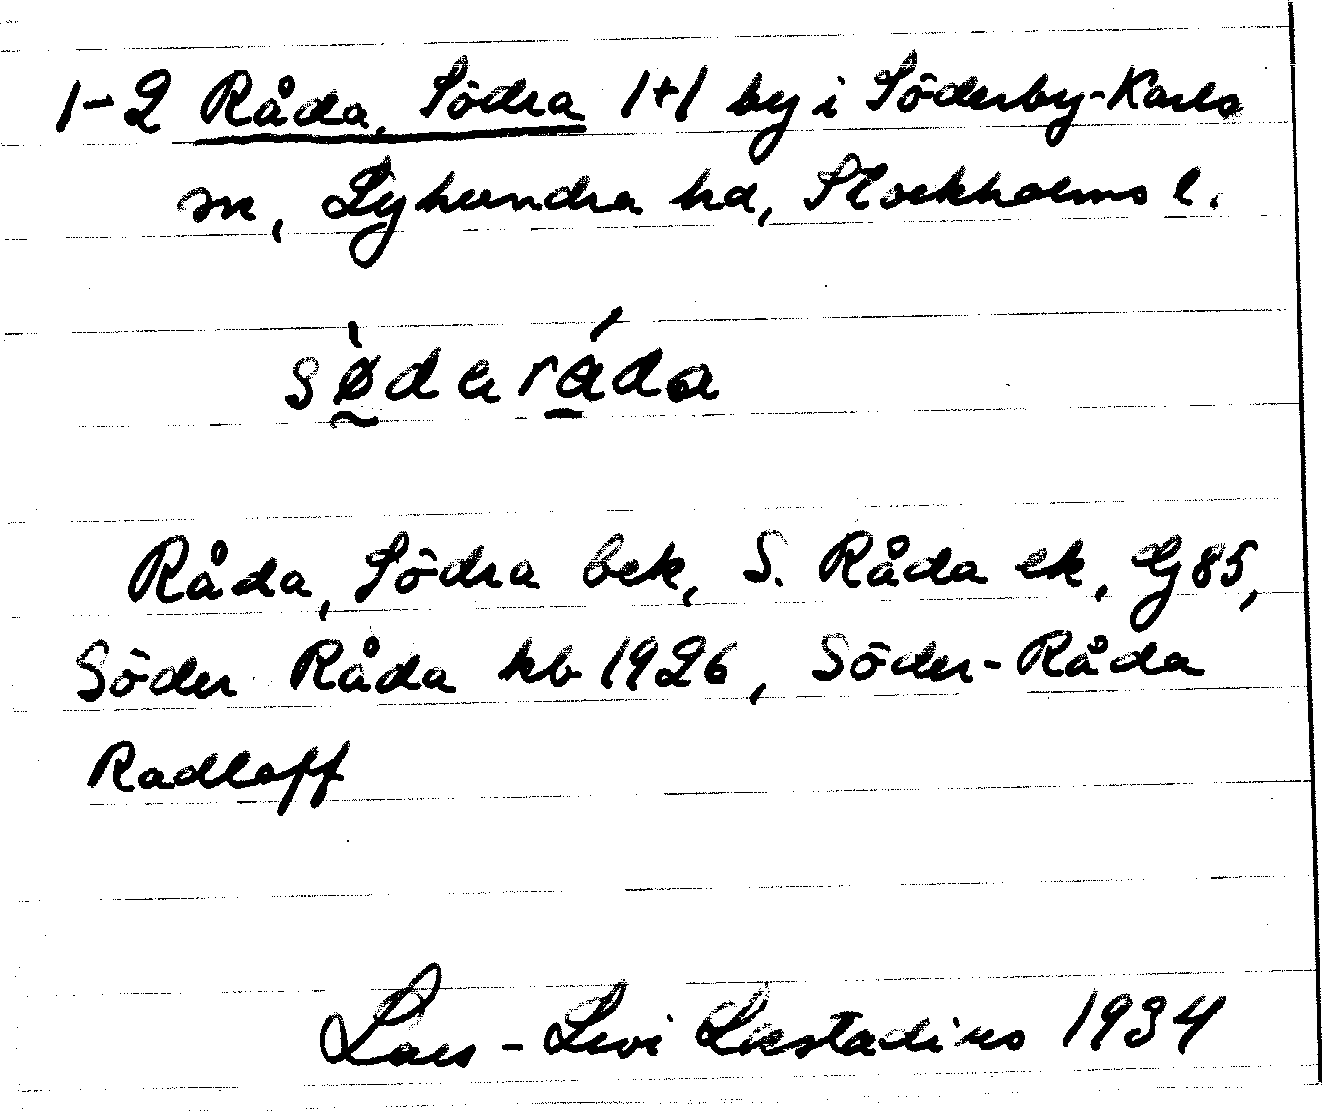 1-2 Råda, Södra 1+1 by i Söderby-Karls
sn, Lyhundra hd, Stockholms l.
sø̀dɘráda
Råda, Södra bek, S. Råda ek, Gj 85,
Söder Råda kb 1926, Söder-Råda
Radloff
Lars-Levi Læstadius 1934